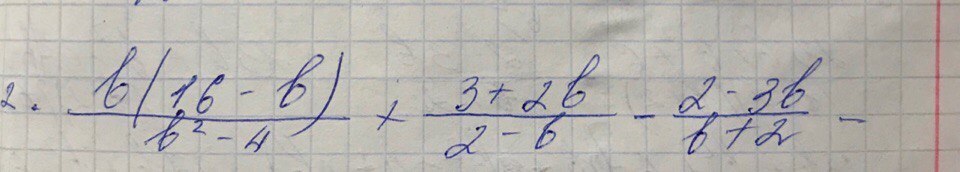 2. b(16 - b)/(b² - 4) + (3 + 2b)/(2 - b) - (2 - 3b)/(b + 2) -